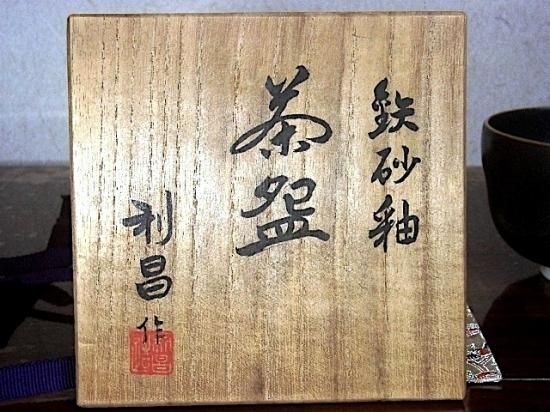 鉄砂釉
茶盌
利昌作